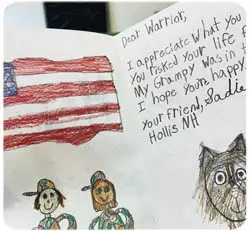 Dear Warrior,
I appreciate what you
you risked your life f
My Grampy was in
I hope you're happy.
your friend, Sadie
Hollis NH